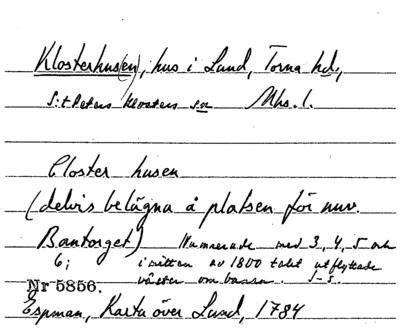 Klosterhus(en), hus i Lund, Torna hd,
S:t Peters klosters sn Mhs. l.
Closter husen
(delvis belägna å platsen för nuv.
Bantorget) Numrerade med 3, 4, 5 och
6; i mitten av 1800 talet utflyttade
väster om banan. J-s.
Nr 5856.
Espman, Karta över Lund, 1784